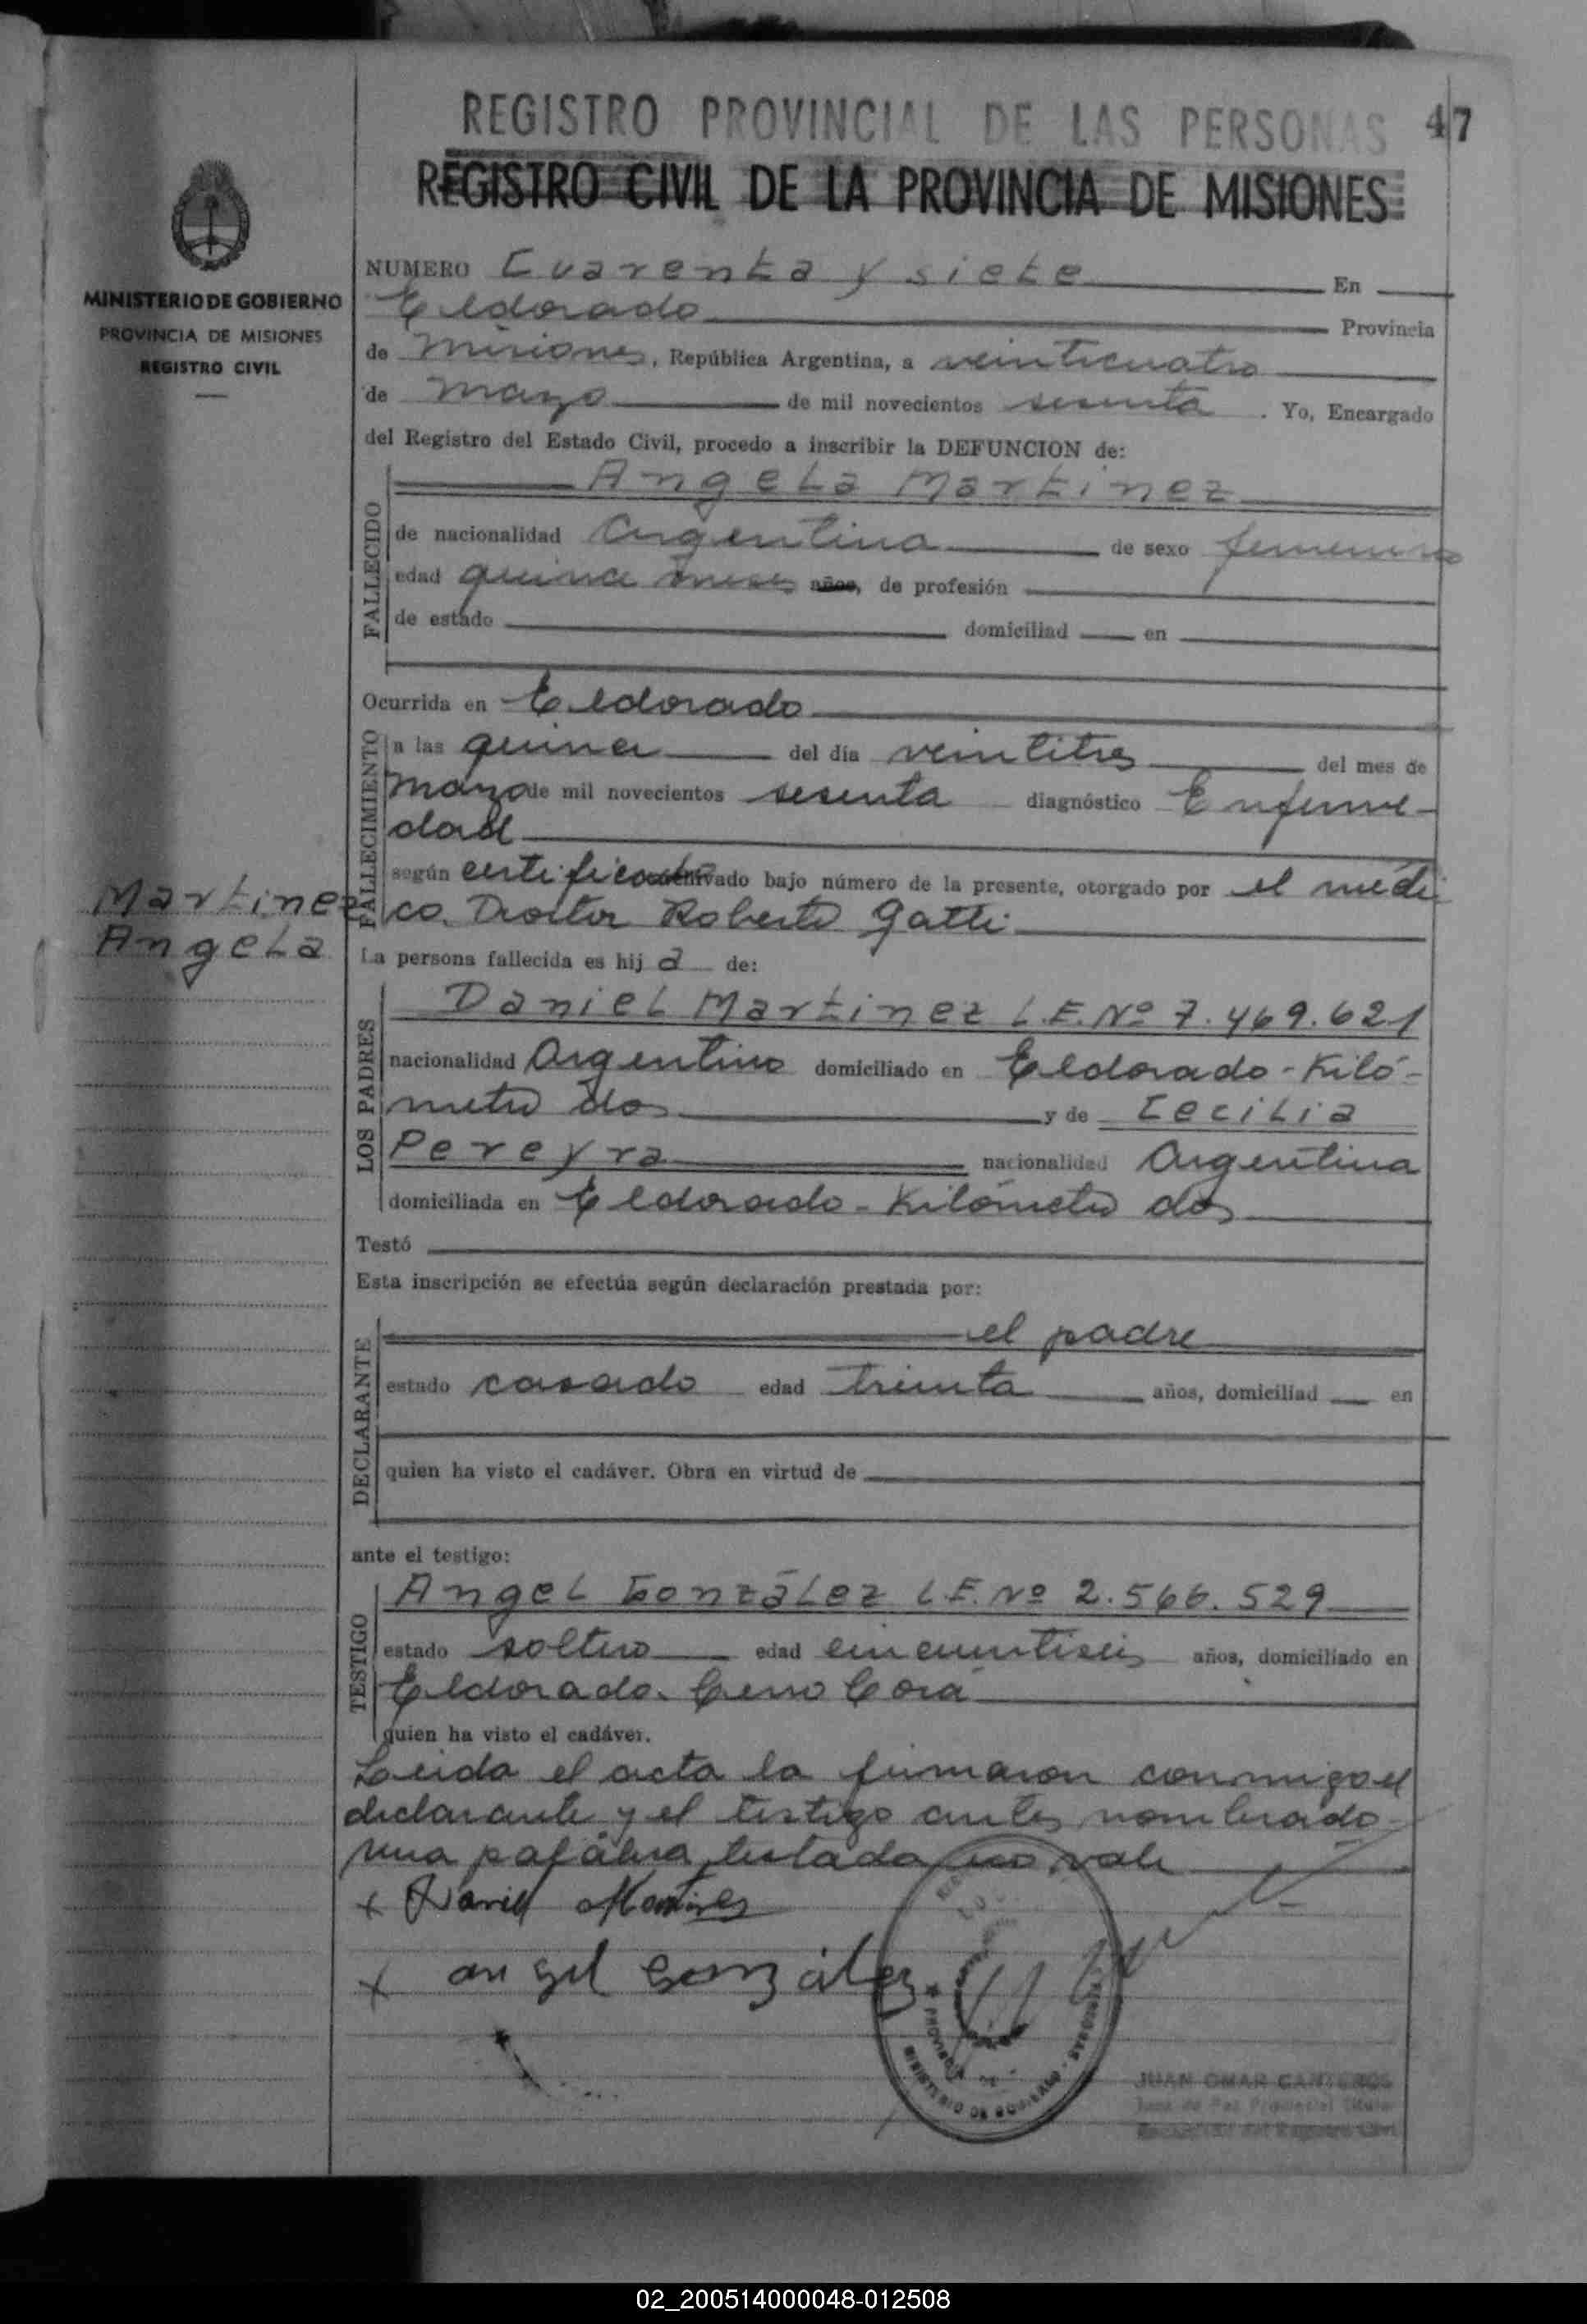 REGISTRO PROVINCIAL DE LAS PERSONAS 47
REGISTRO CIVIL DE LA PROVINCIA DE MISIONES
MINISTERIO DE GOBIERNO
PROVINCIA DE MISIONES
REGISTRO CIVIL
NUMERO Cuarenta y siete En
Eldorado Provincia
de Misiones, República Argentina, a veinticuatro
de mayo de mil novecientos sesenta . Yo, Encargado
del Registro del Estado Civil, procedo a inscribir la DEFUNCION de:
FALLECIDO
Angela Martinez
de nacionalidad Argentina de sexo femenino
edad quince meses años, de profesión
de estado domiciliad en
Ocurrida en Eldorado
FALLECIMIENTO
a las quince del día veintitres del mes de
mayo de mil novecientos sesenta diagnóstico Enferme-
dad
según certificado archivado bajo número de la presente, otorgado por el médi-
co Doctor Roberto Gatti
Martinez
Angela
La persona fallecida es hij a de:
LOS PADRES
Daniel Martinez L.E. Nº 7.469.621
nacionalidad Argentino domiciliado en Eldorado - Kiló-
metro dos y de Cecilia
Pereyra nacionalidad Argentina
domiciliada en Eldorado - Kilómetro dos
Testó
Esta inscripción se efectúa según declaración prestada por:
DECLARANTE
el padre
estado casado edad treinta años, domiciliad en
quien ha visto el cadáver. Obra en virtud de
ante el testigo:
TESTIGO
Angel González L.E. Nº 2.566.529
estado soltero edad cincuentiseis años, domiciliado en
Eldorado. Cerro Corá
quien ha visto el cadáver.
Leida el acta la firmaron conmigo el
declarante y el testigo antes nombrado-
una palabra testada no vale
x Daniel Martines
x angel González
PROVINCIA DE MISIONES
MINISTERIO DE GOBIERNO
JUAN OMAR CANTEROS
Juez de Paz Provincial Titular
Encargado del Registro Civil
02_200514000048-012508